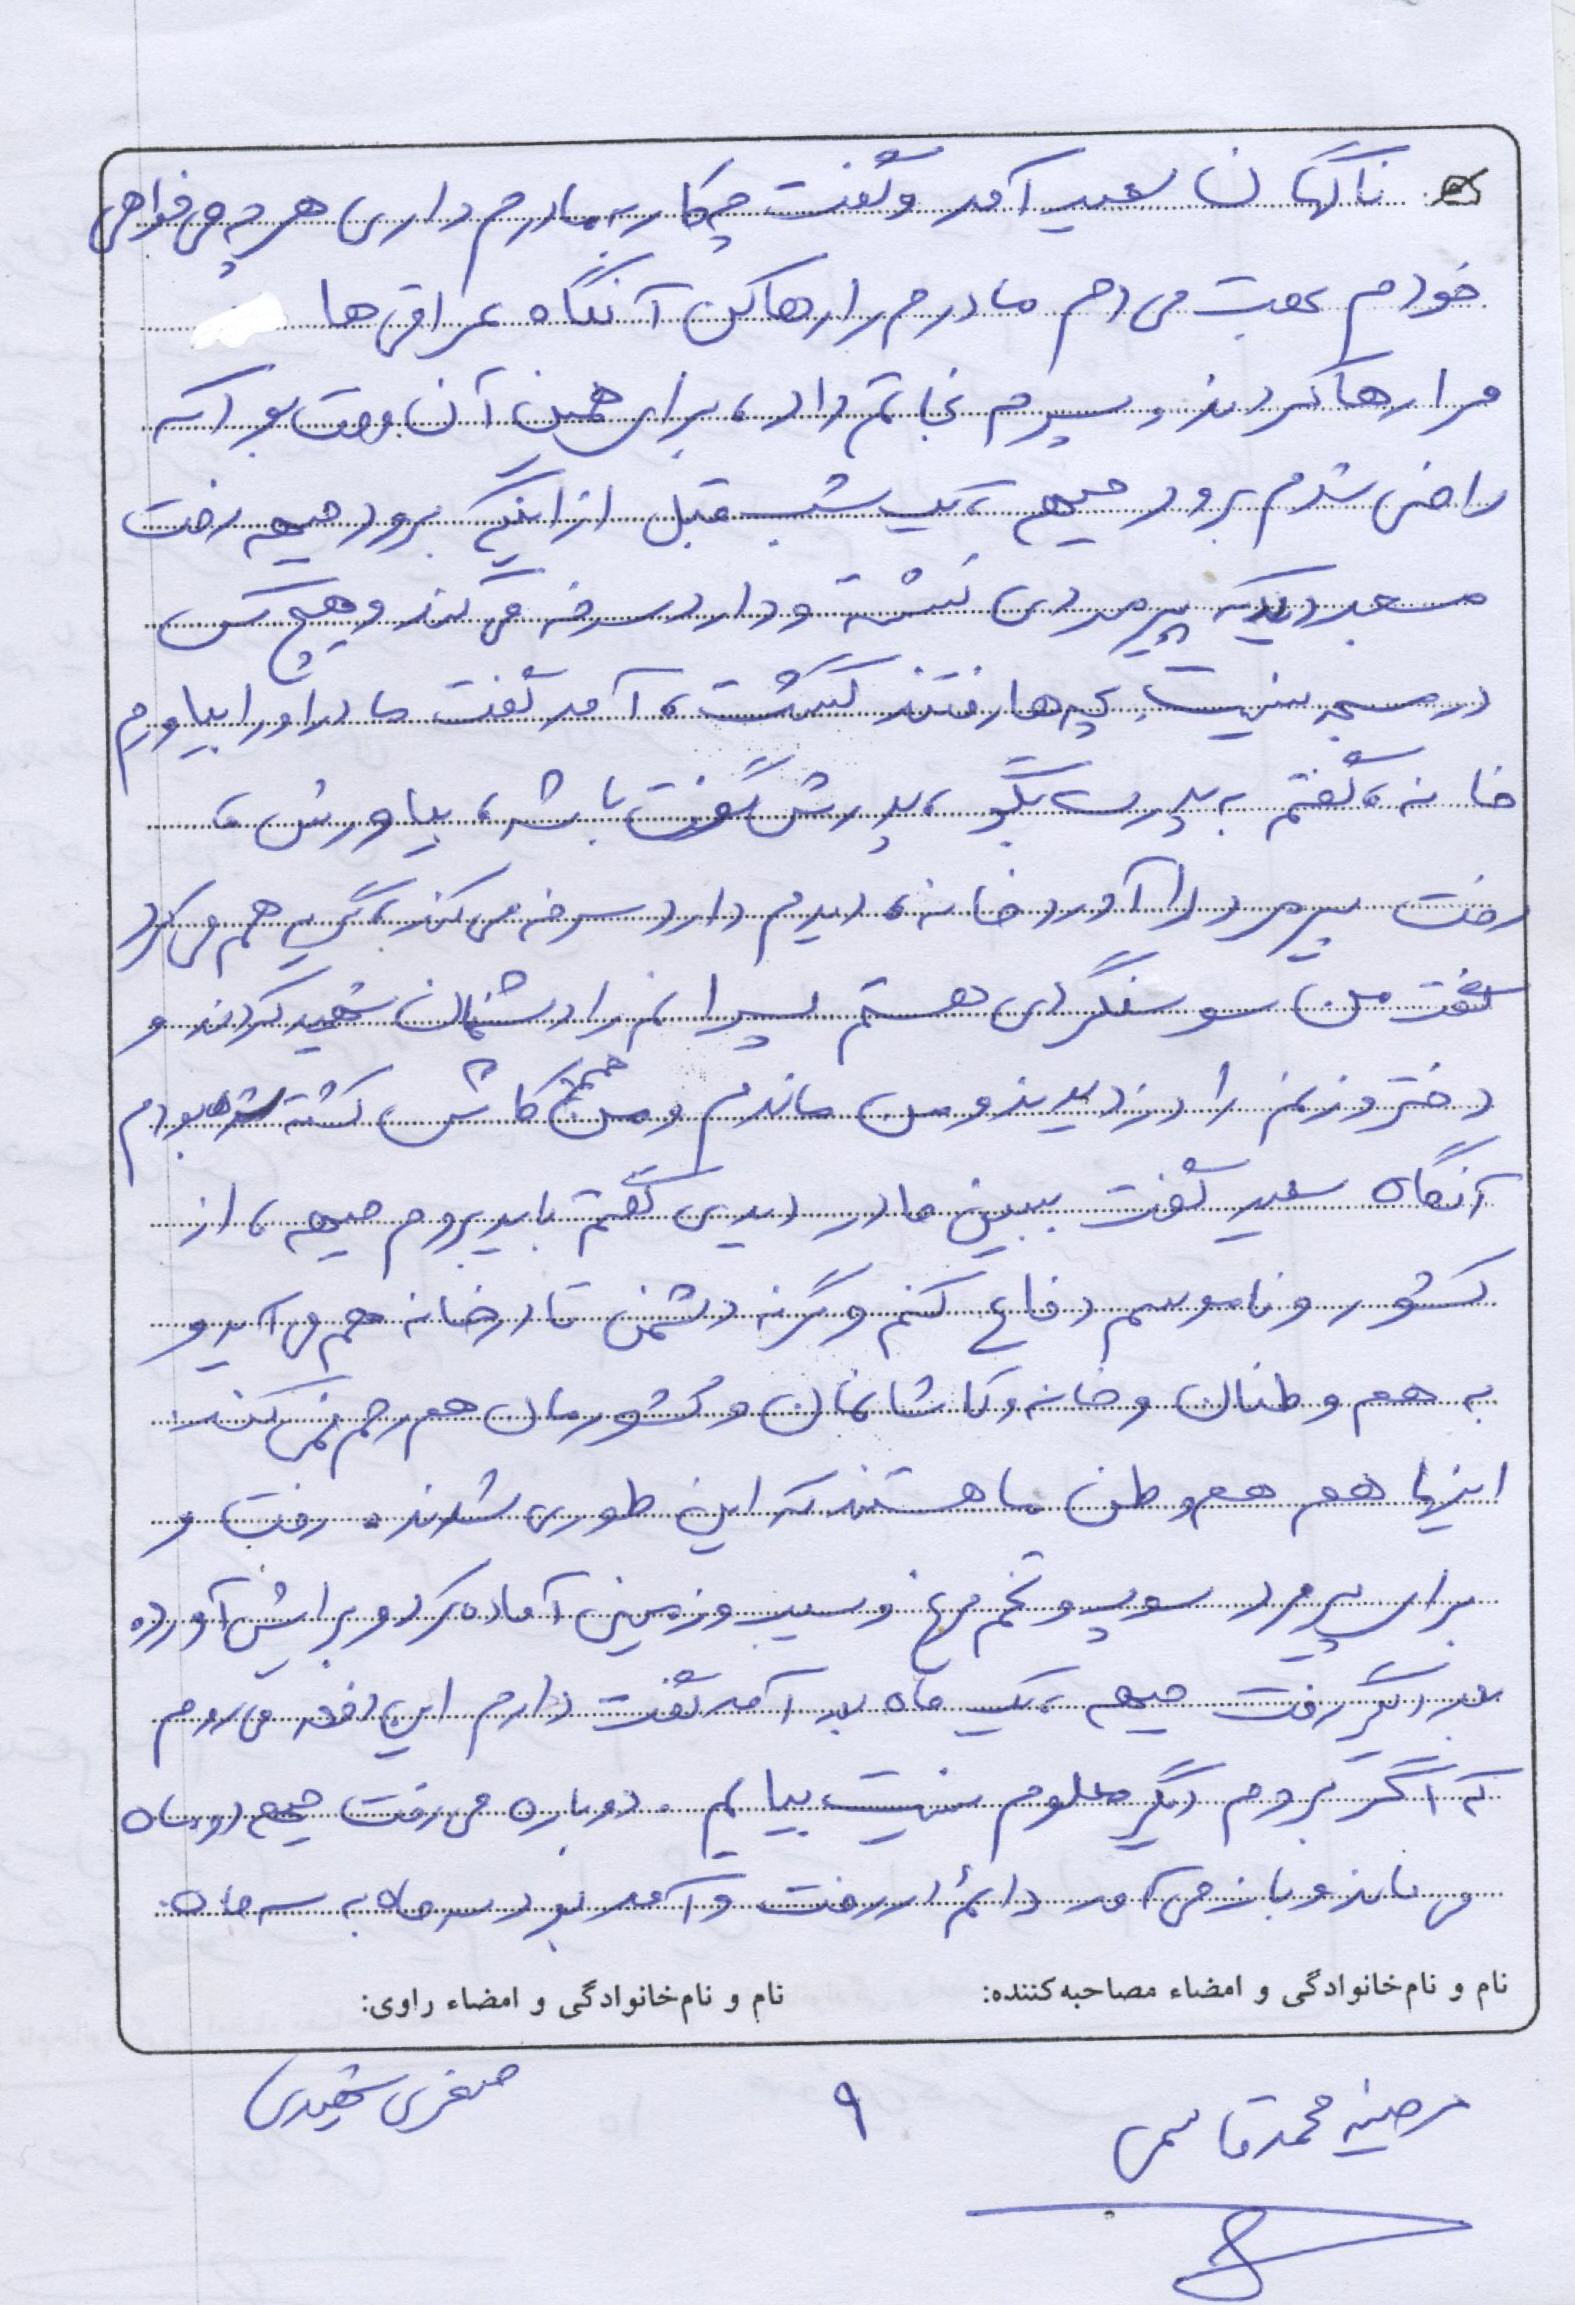 ناگهان سعید آمد و گفت چکار به مادرم داری هر چه می‌خواهی
خودم بهت می‌دهم مادرم را رها کن آنگاه عراقی‌ها
مرا رها کردند و پسرم نجاتم داد، برای همین آن وقت بود که
راضی شدم برود جبهه، یک شب قبل از اینکه برود جبهه رفت
مسجد دید که پیرمردی نشسته و دارد سرفه می‌کند و هیچ کس
در مسجد نیست بچه‌ها رفتند گشت، آمد گفت مادر او را بیاورم
خانه، گفتم به پدرت بگو، پدرش گفت باشه، بیاورش،
رفت پیرمرد را آورد خانه، دیدم دارد سرفه می‌کند، گریه هم می‌کرد
گفت من سوسنگردی هستم پسرانم را دشمنان شهید کردند و
دختر و زنم را دزدیدند و من ماندم و من هم کاش کشته شده بودم
آنگاه سعید گفت ببین مادر دیدی گفتم باید بروم جبهه، از
کشور و ناموسم دفاع کنم وگرنه دشمن تا در خانه هم می‌آید و
به هم وطنان و خانه و کاشانمان و کشورمان هم رحم نمی‌کند
اینها هم هم وطن ما هستند که این طوری شدند. رفت و
برای پیرمرد سوپ و تخم مرغ و سیب و زمینی آماده کرد و برایش آورده
بعد دیگر رفت جبهه، یک ماه بعد آمد گفت دارم این دفعه می‌روم
که اگر بروم دیگر معلوم نیست بیایم. دوباره می‌رفت جبهه دو ماه
می‌ماند و باز می‌آمد دائم در رفت و آمد بود سه ماه به سه ماه.
نام و نام‌خانوادگی و امضاء مصاحبه‌کننده:
نام و نام‌خانوادگی و امضاء راوی:
مرضیه محمدقاسمی
۹
صغری شهیدی